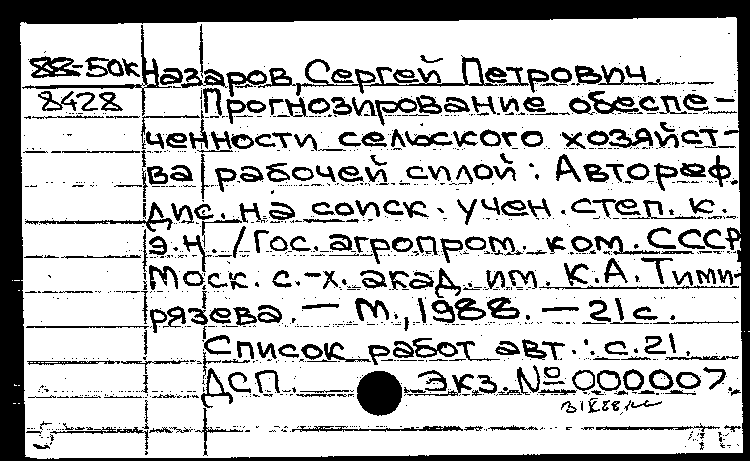 88-50к Назаров, Сергей Петрович.
8428 Прогнозирование обеспе-
ченности сельского хозяйст-
ва рабочей силой: Автореф.
дис. на соиск. учен. степ. к.
э.н. / Гос. агропром. ком. СССР,
Моск. с.-х. акад. им. К.А. Тими-
рязева. — М., 1988. — 21 с.
Список работ авт.: с.21.
ДСП. Экз. № 000007.